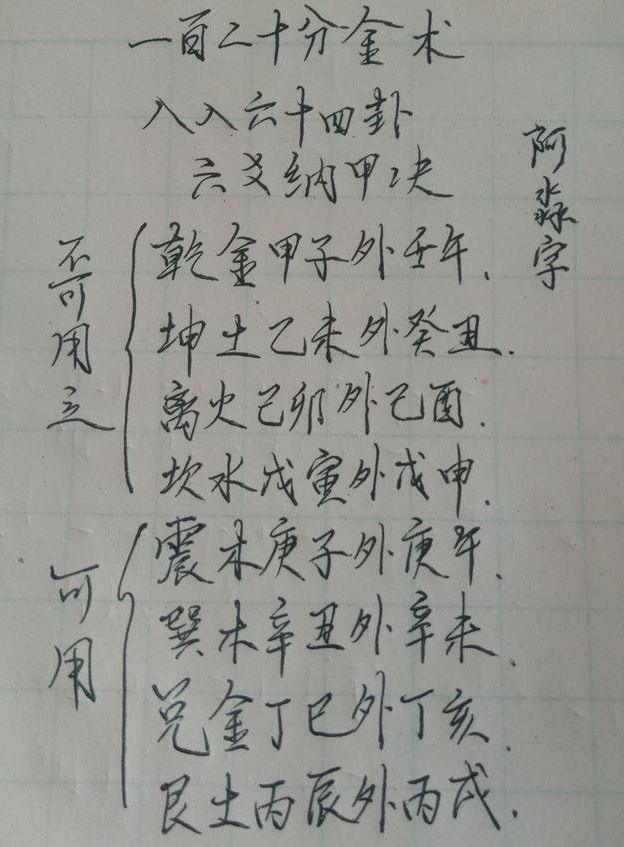 一百二十分金术
八八六十四卦
六爻纳甲决
阿淼字
不可用之
乾金甲子外壬午.
坤土乙未外癸丑.
离火己卯外己酉.
坎水戊寅外戊申.
可用
震木庚子外庚午.
巽木辛丑外辛未.
兑金丁巳外丁亥.
艮土丙辰外丙戌.